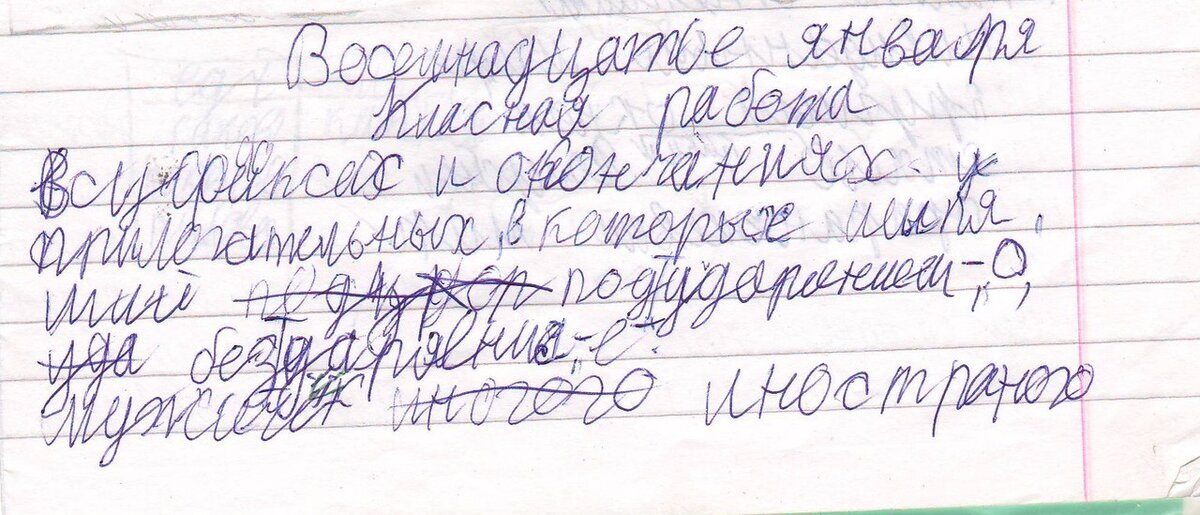 Восемнадцатое января
Класная работа
В суффиксах и окончаниях у
прилогательных, в которых шыпя
щий подударением-О,
уда без ударяения-е.
Мужской иного иностраного